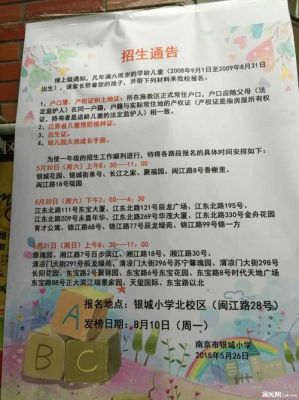 招生通告
接上级通知，凡年满六周岁的学龄儿童（2008年9月1日至2009年8月31日
出生），请家长带着您的孩子，并带下列材料来我校报名：
1、户口簿、产权证和土地证：所在施教区正式常住户口，户口应随父母（法
定监护人）在同一户籍，户籍与实际常住地的产权证（产权证是指房屋所有权
证，持有者是适龄儿童的法定监护人）相一致。
2、江苏省儿童预防接种证。
3、出生证。
4、幼儿园大班成长手册。
为使一年级的招生工作顺利进行，特将各路段报名的具体时间安排如下：
5月30日（周六）上午8：30—11：00
银城花园、银城街单号、长江之家、聚福园、闽江路8号香榭里、
闽江路18号瑞园
5月30日（周六）下午2：00—4：30
江东北路111号东宝大厦、江东北路121号辰龙广场、江东北路195号、
江东北路209号永嘉年华、江东北路269号华茂大厦、江东北路330号金舟花园
育才公寓、锦江路68号、锦江路77号辰龙绿苑、锦江路99号绿苑一方
5月31日（周日）上午8：30—11：00
雅瑰园、湘江路7号百步滨江、湘江路18号、湘江路30号、
清凉门大街291号辰龙绿苑、清凉门大街296号苏宁馨瑰园、清凉门大街298号
长阳花园、东宝路2号聚锦园、东宝路6号东宝花园、东宝路8号时代天地广场
东宝路88号正大滨江瑞景家园、天玺国际、东宝路以北
报名地点：银城小学北校区（闽江路28号）
发榜日期：8月10日（周一）
南京市银城小学
2015年5月26日
A
B
C